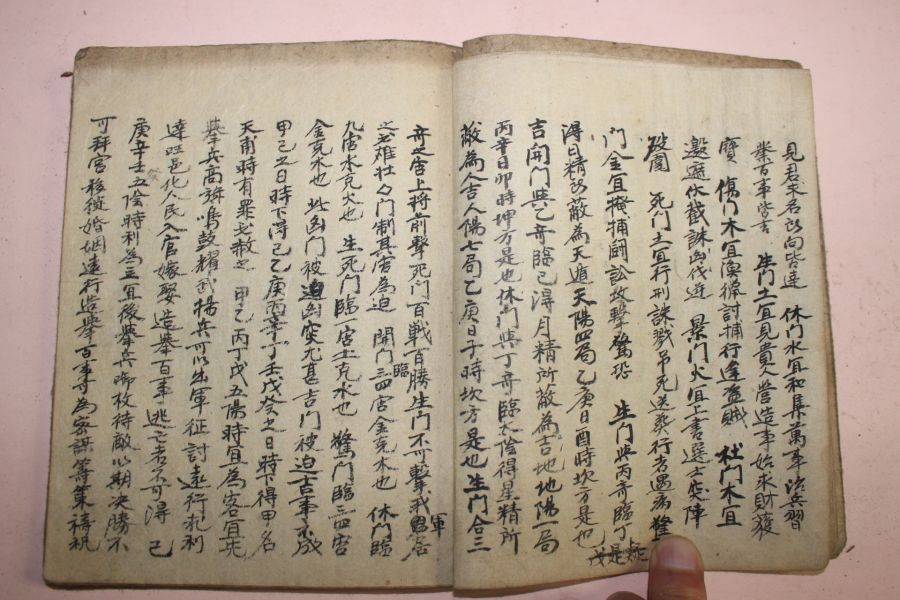 見君求名所向皆達 休門水宜和集萬事治兵習
業百事皆吉 生門土宜見貴人營造事始求財獲
寶 傷門木宜漁獵討捕行逢盜賊 杜門木宜
邀遮伏截誅凶伐逆 景門火宜上書選士突陣
破圍 死門土宜行刑誅戮吊死送葬行者遇病 驚
門金宜掩捕鬪訟攻擊驚恐 生門與丙奇臨丁
戊是
得日精所蔽為天遁天陽四局乙庚日酉時坎方是也
吉 開門與乙奇臨己得月精所蔽為吉地地陽一局
丙辛日卯時坤方是也休門與丁奇臨太陰得星精所
蔽為人吉人陽七局乙庚日子時坎方是也生門合三
奇之宮上將前擊死門百戰百勝生門不可擊我軍
英雄壯夕門制其宮為迫 開門臨三四宮金克木也 休門臨
九宮水克火也 生死門臨一宮土克水也 驚門臨三四宮
金克木也 此凶門被迫凶突尤甚吉門被迫吉事不成
甲己之日時下得己乙庚丙辛丁壬戊癸之日時下得甲名
天甫時有罪必赦之 甲乙丙丁戊五陽時宜為客宜先
擧兵高旗鳴鼓耀武揚兵可以出軍征討遠行犯利
達旺邑化人民入官嫁娶造擧百事逃亡者不可得 己
庚辛壬五陰時利為主宜後擧兵啣枚待敵必期決勝不
可拜官移徙婚姻遠行造擧百事為客謀等集禱祝